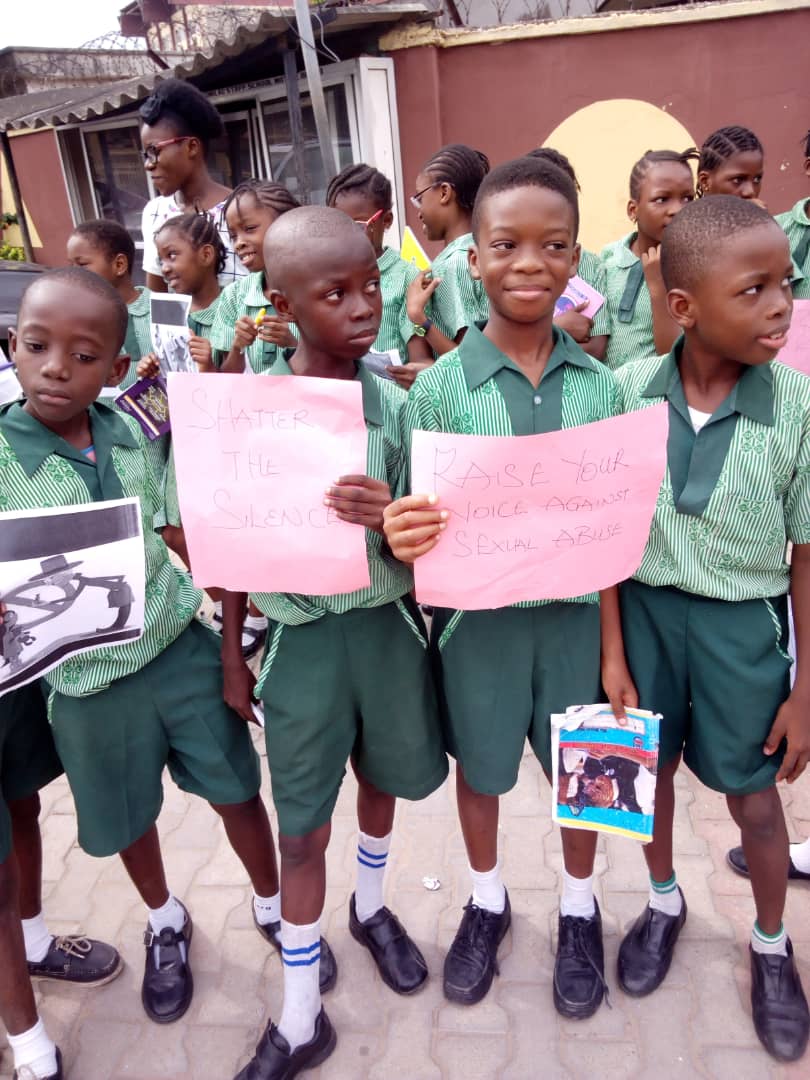 STAFF SCHOOL
SHATTER
THE
SILENCE
RAISE YOUR
VOICE AGAINST
SEXUAL ABUSE